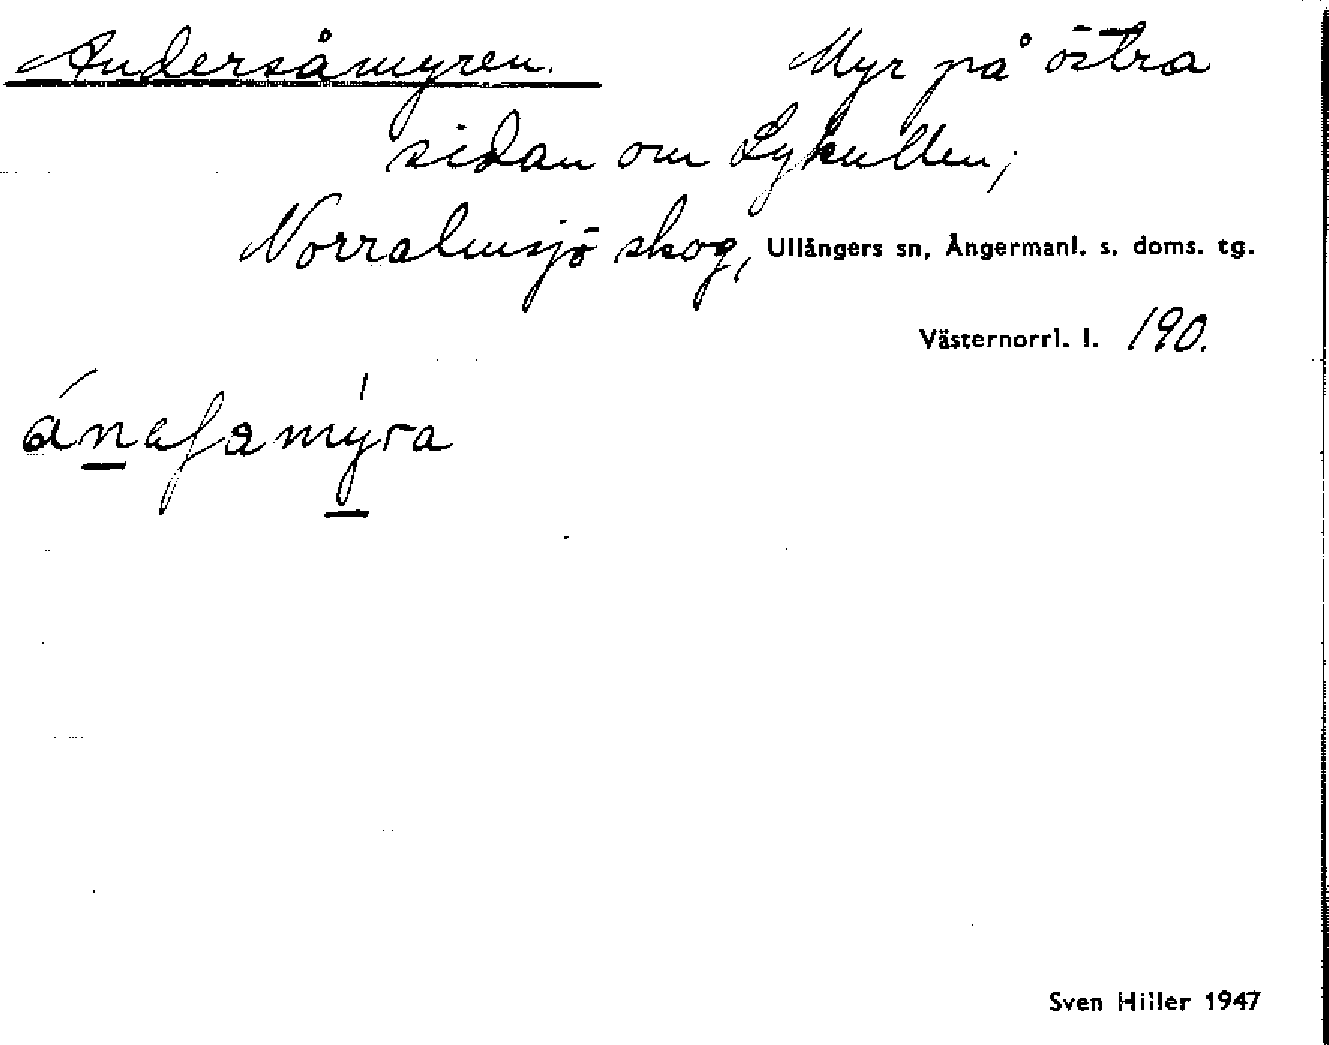 Andersåmyren. Myr på östra
sidan om Lykullen;
Norralmsjö skog, Ullångers sn, Ångermanl. s. doms. tg.
Västernorrl. l. 190.
ánaʃamýra
Sven Hiller 1947